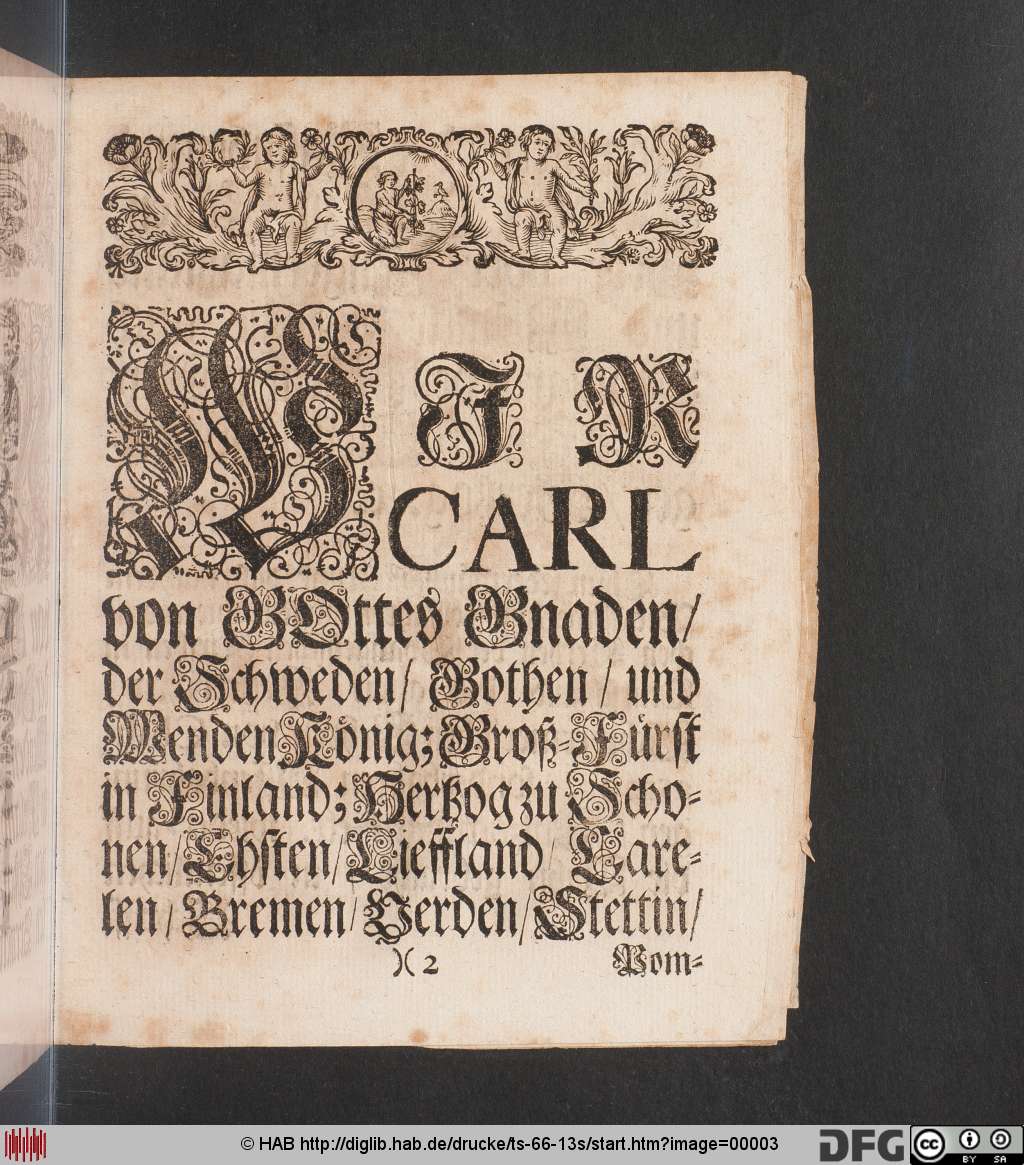 WIR
CARL
von GOttes Gnaden/
der Schweden/ Gothen / und
Wenden König; Groß-Fürst
in Finland; Hertzog zu Scho-
nen/ Ehsten/ Lieffland/ Care-
len/ Bremen/ Verden/ Stettin/
)( 2
Pom-
© HAB http://diglib.hab.de/drucke/ts-66-13s/start.htm?image=00003
DFG
cc
BY SA